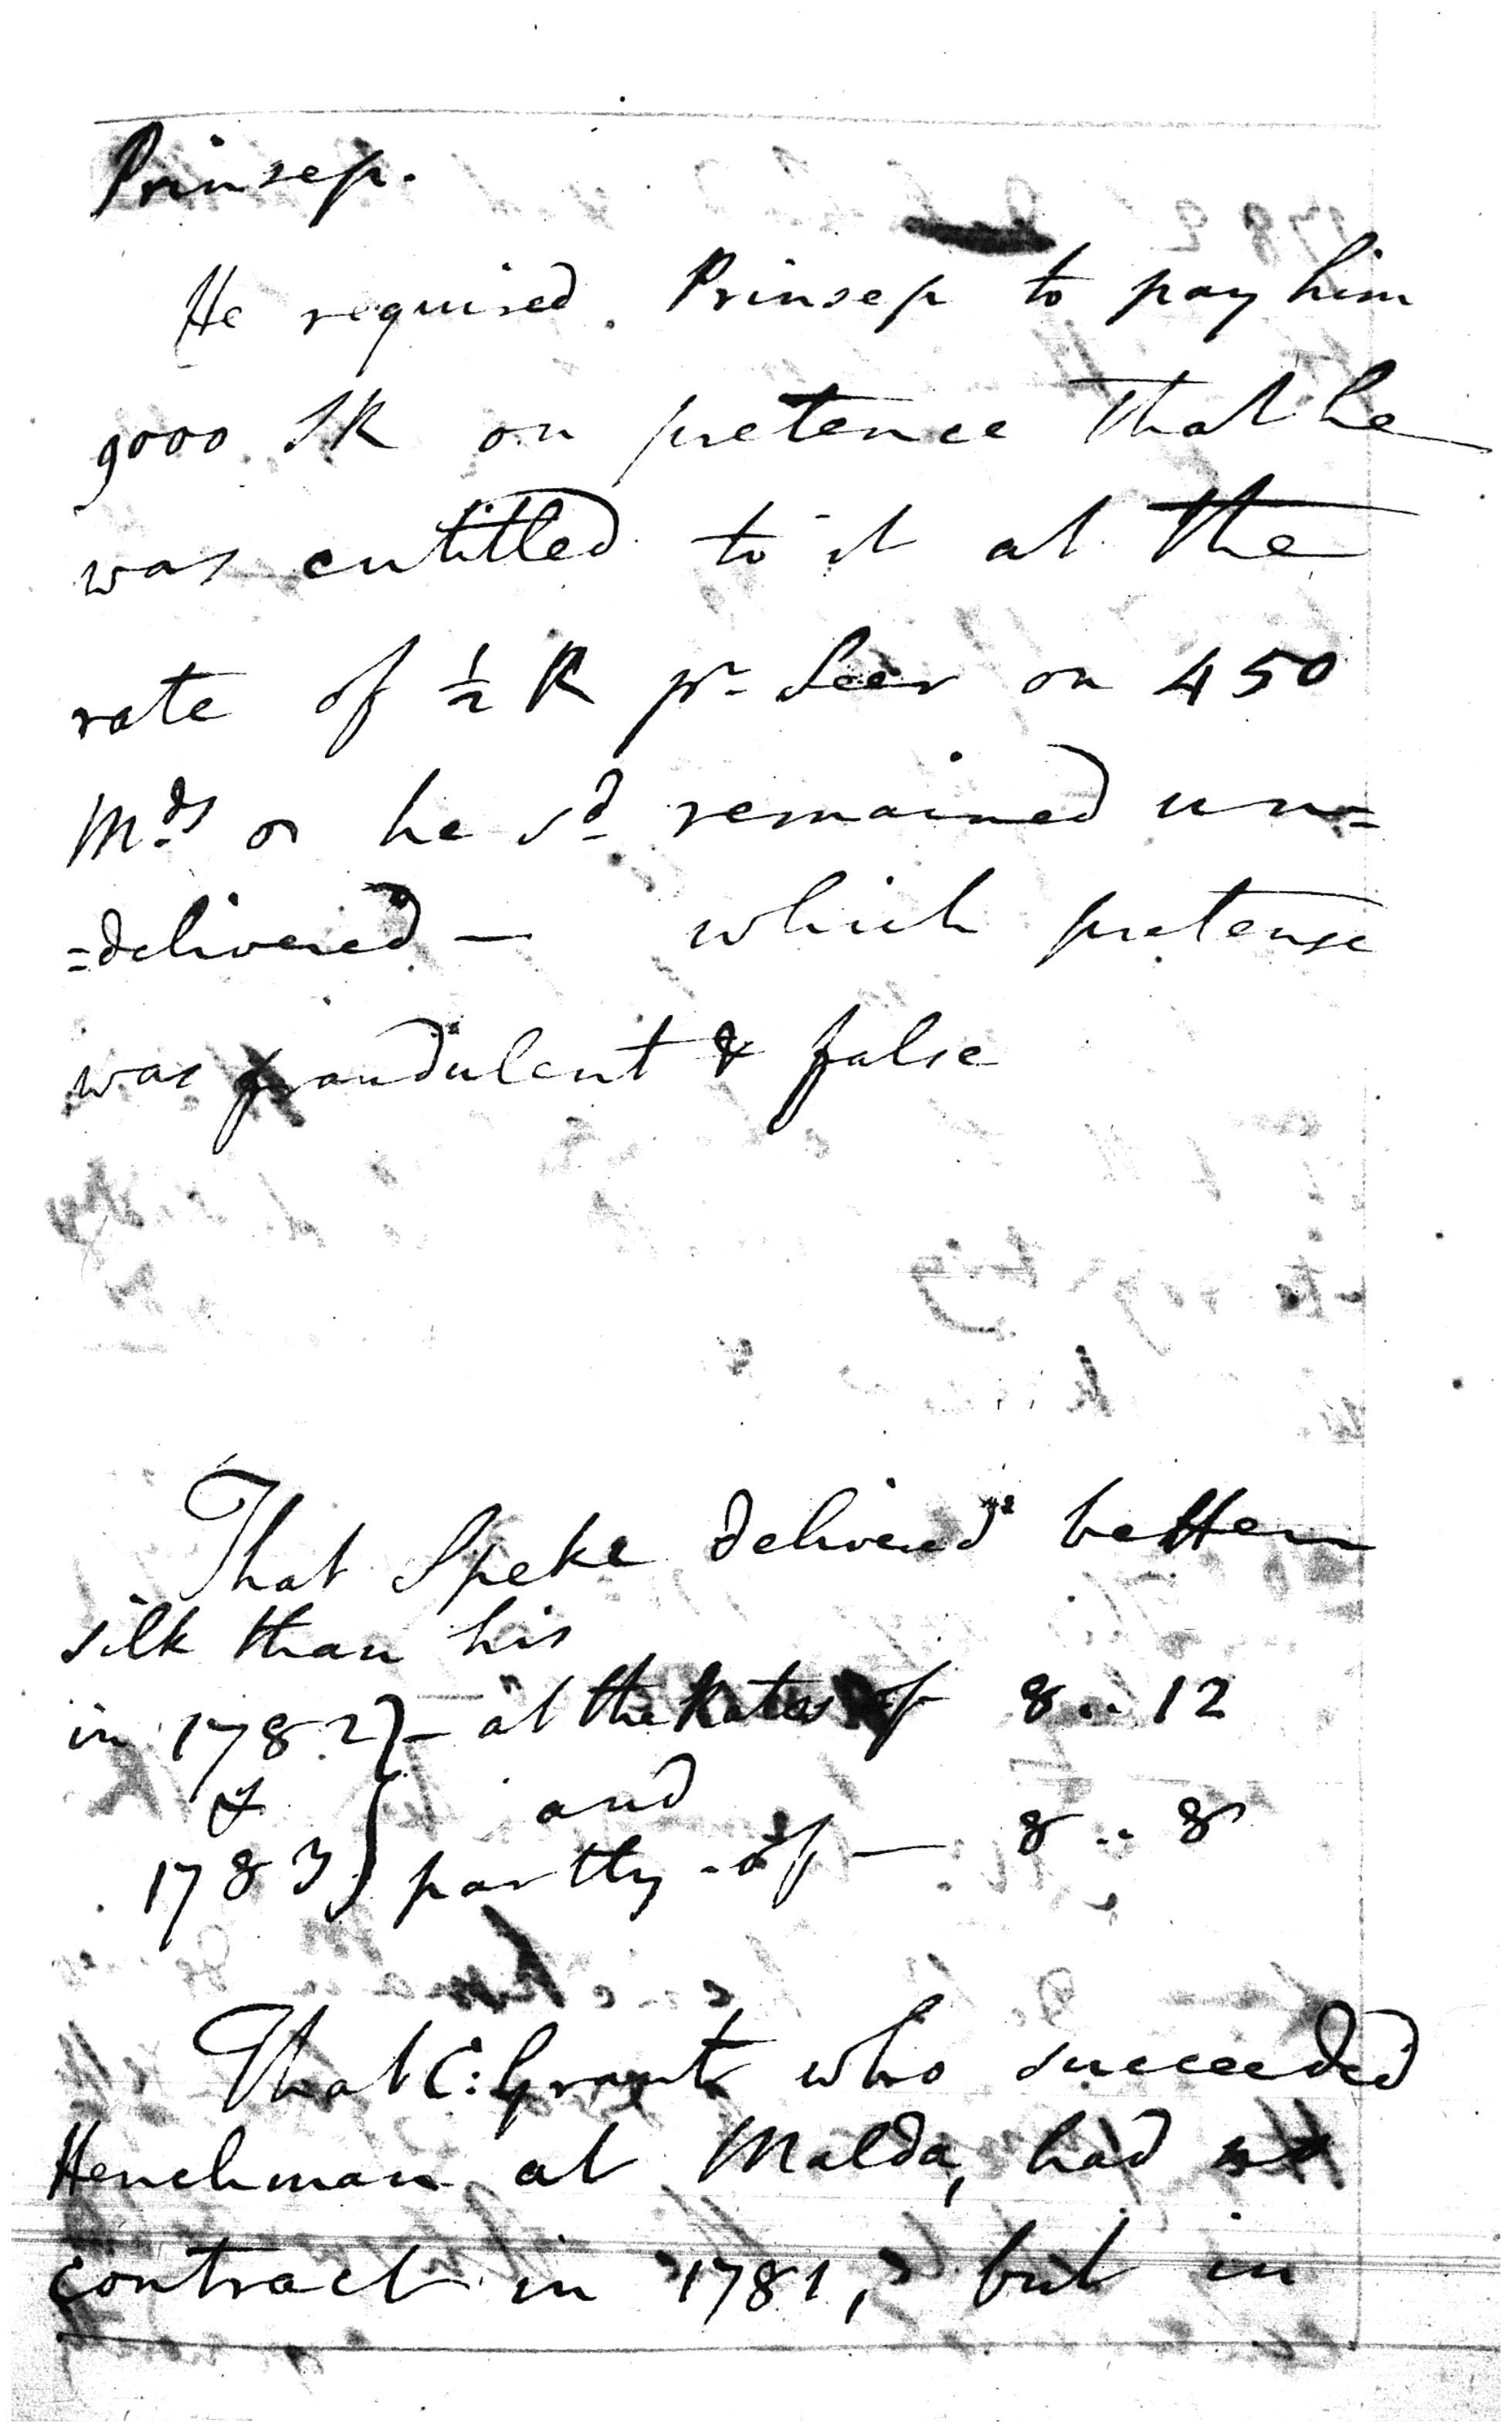 Prinsep.
He required Prinsep to pay him
9000 SR on pretence that he
was entitled to it at the
rate of ½ R pr Seer on 450
Mds or he sd remained un=
=delivered — which pretense
was fraudulent & false
That Speke delivered better
silk than his
in 1782 } — at the Rates of 8 .. 12
& } and
1783 } partly of — 8 .. 8
That C: Grant who succeeded
Henchman at Malda, had
contract in 1781, but in